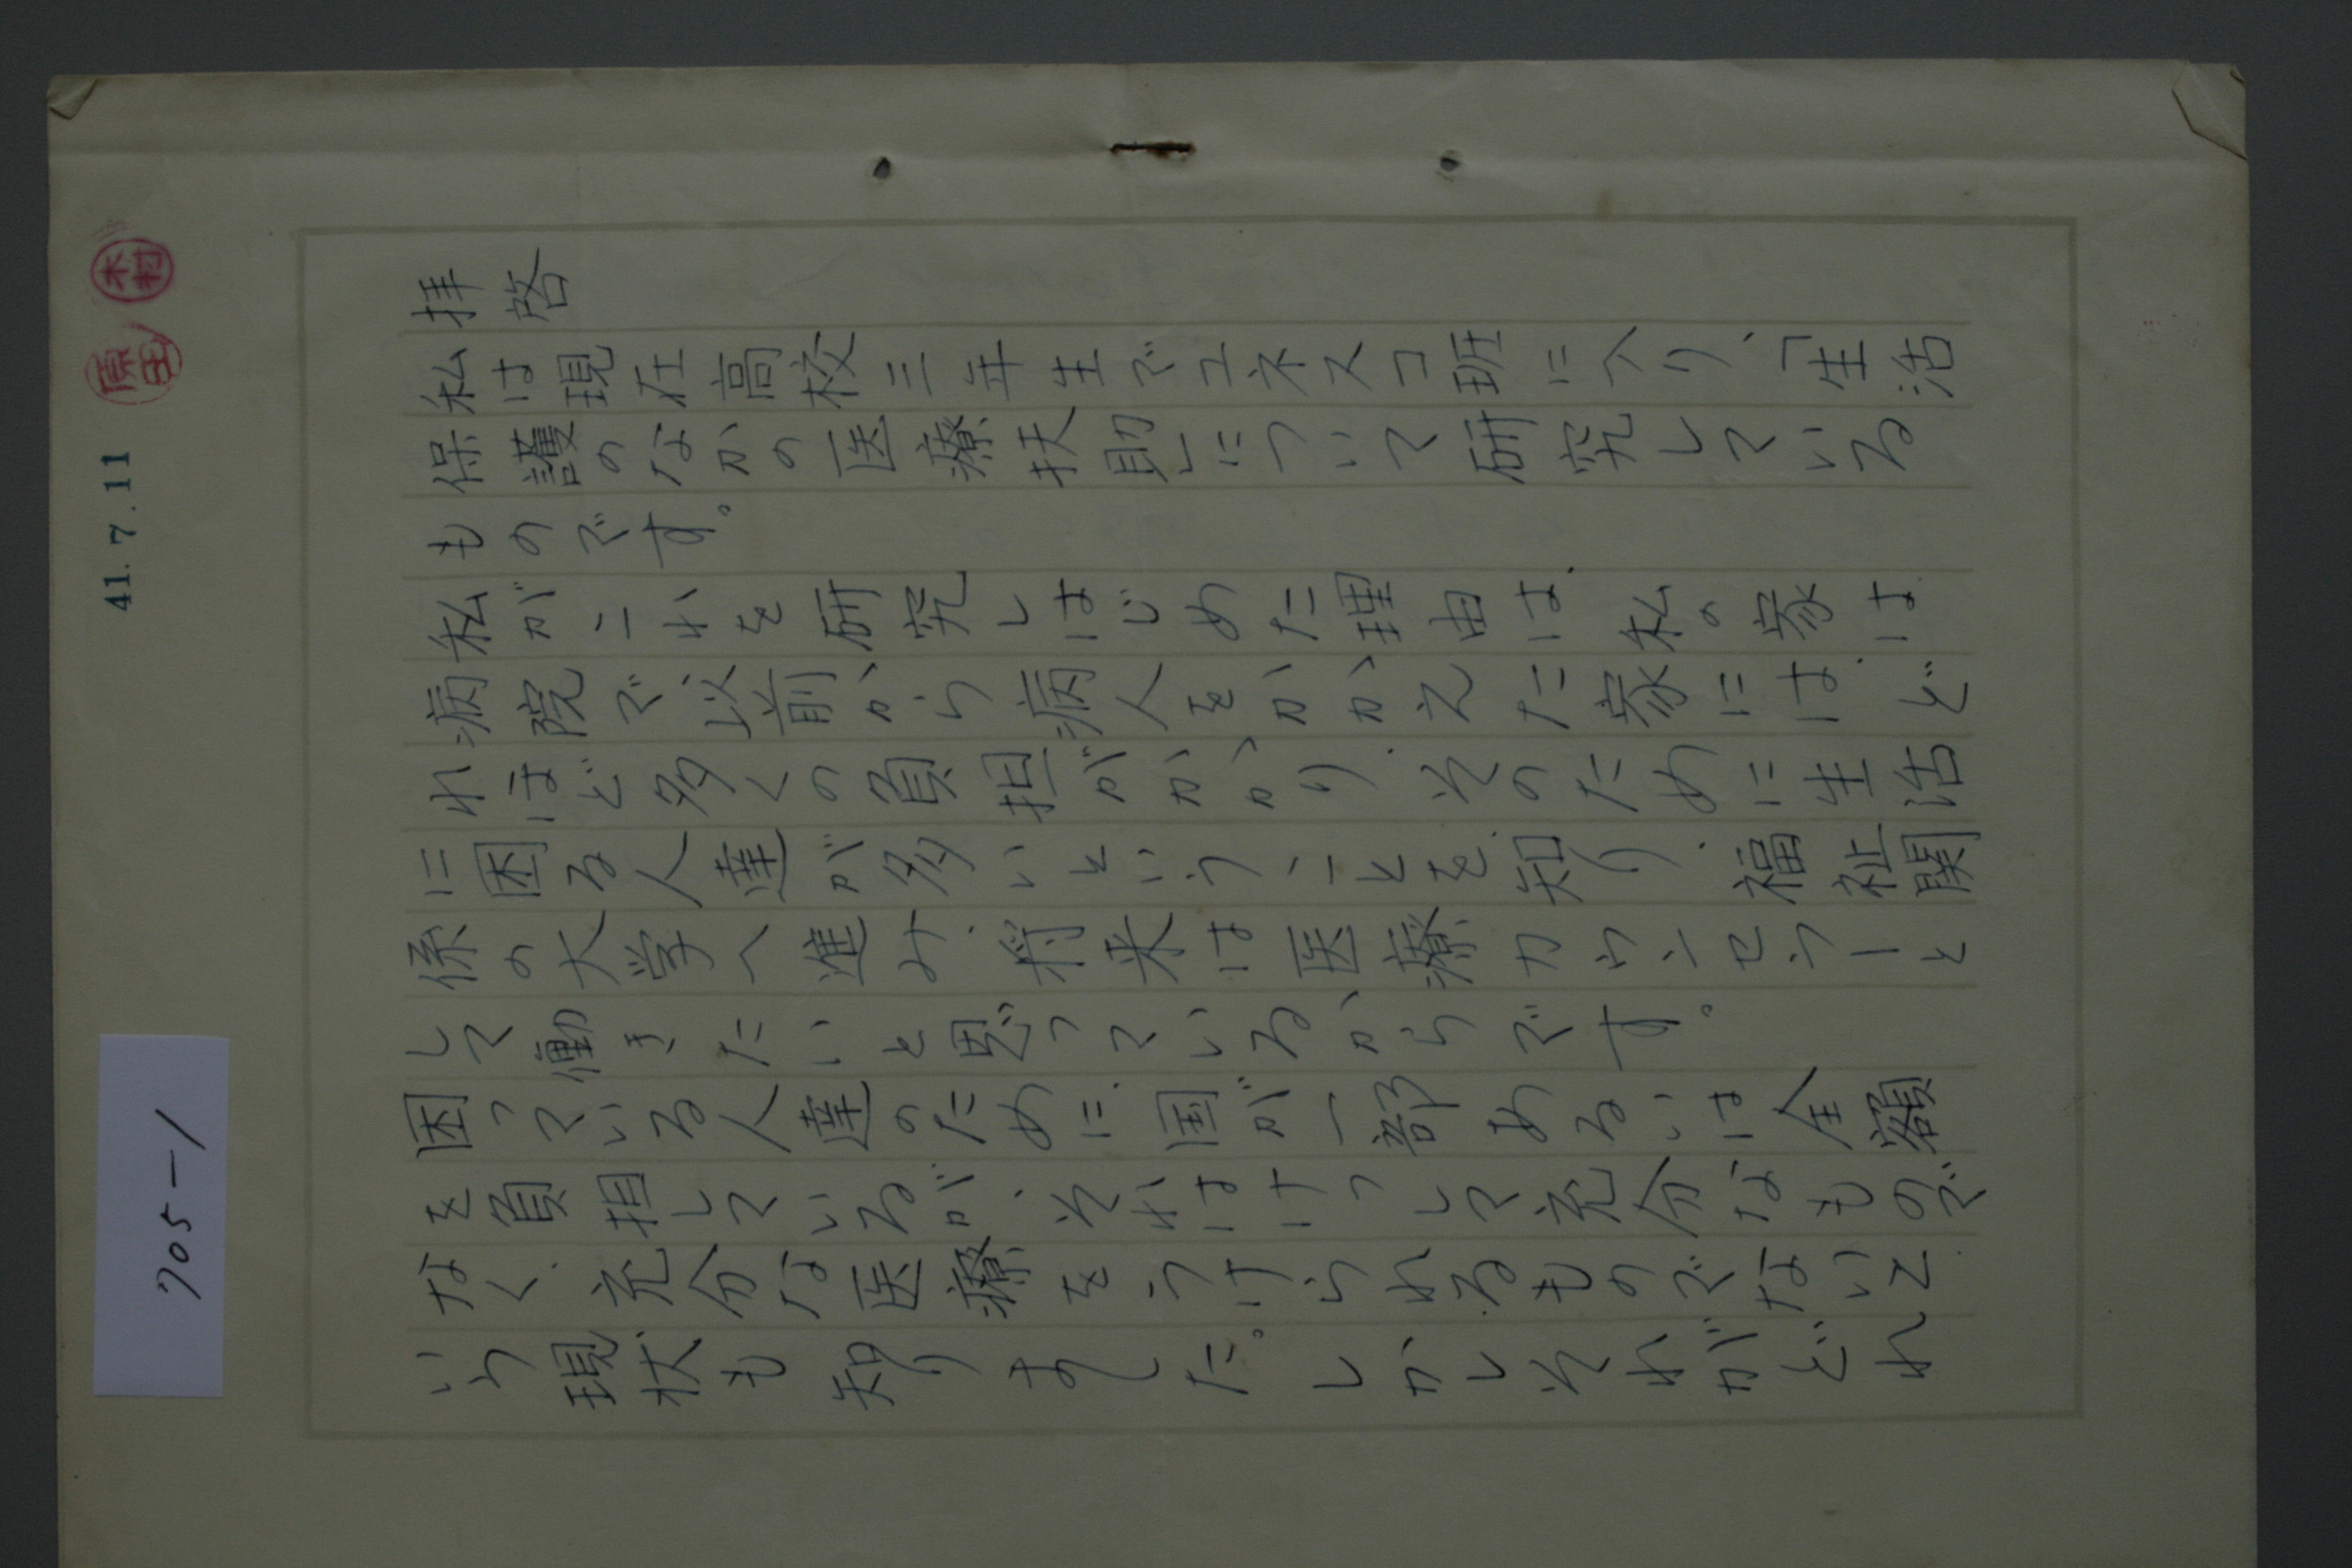 41.7.11
木村
原田
705-1
拝啓
私は現在高校三年生でユネスコ班に入り、「生活
保護のなかの医療扶助」について研究している
ものです。
私がこれを研究しはじめた理由は、私の家は
病院で以前から病人をかかえた家には、ど
れほど多くの負担がかかり、そのために生活
に困る人達が多いということを知り、福祉関
係の大学へ進み、将来は医療カウンセラーと
して働きたいと思っているからです。
困っている人達のために、国が一部あるいは全額
を負担しているが、それはけっして充分なもので
なく、充分な医療をうけられるものでないと
いう現状も知りました。しかしそれがどれ